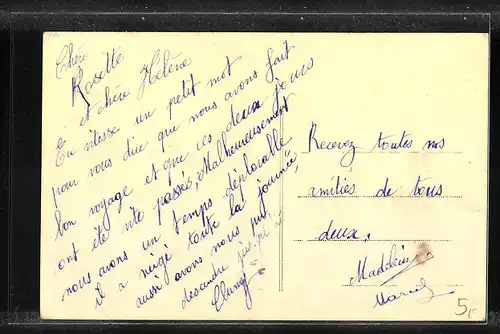 Chère
Rosette
et chère Hélène
En vitesse un petit mot
pour vous dire que nous avons fait
bon voyage et que ces deux jours
ont été vite passés, Malheureusement
nous avons un temps déplorable
il a neigé toute la journée,
aussi avons nous pu
descendre jusqu'à
Cluny
Recevez toutes nos
amitiés de tous
deux.
Madeleine
Marcel
5